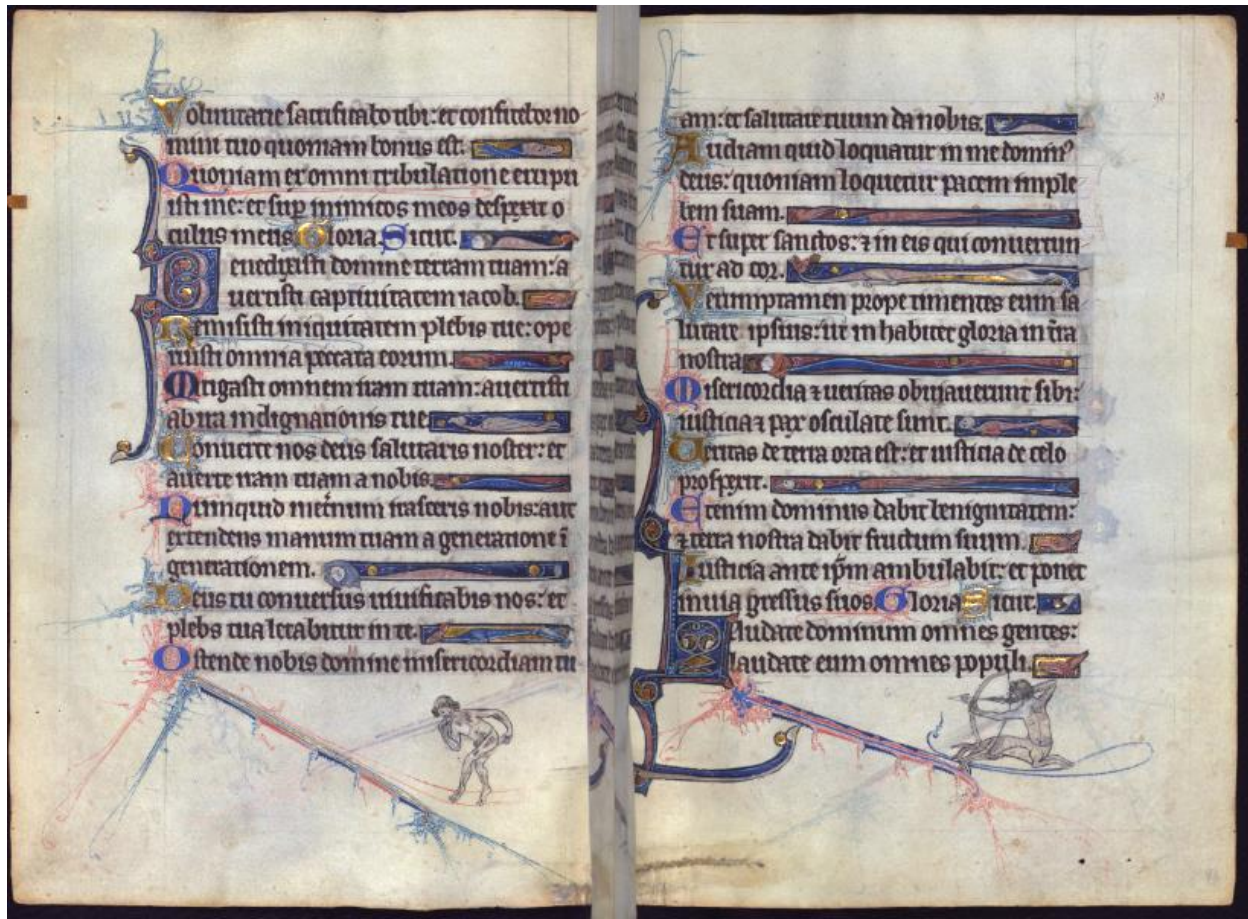 Voluntarie sacrificabo tibi: et confitebor no-
mini tuo quoniam bonus est.
Quoniam ex omni tribulatione eripu
isti me: et sup inimicos meos despexit o
culus meus Gloria. Sicut.
Benedixisti domine terram tuam: a
uertisti captiuitatem iacob.
Remisisti iniquitatem plebis tue: ope
ruisti omnia peccata eorum.
Mitigasti omnem iram tuam: auertisti
ab ira indignationis tue
Conuerte nos deus salutaris noster: et
auerte iram tuam a nobis.
Numquid in eternum irasceris nobis: aut
extendens manum tuam a generatione ī
generationem.
Deus tu conuersus uiuificabis nos: et
plebs tua letabitur in te.
Ostende nobis domine misericordiam tu
am: et salutare tuum da nobis.
Audiam quid loquatur in me domin⁹
deus: quoniam loquetur pacem in ple
bem suam.
Et super sanctos: ⁊ in eis qui conuertun
tur ad cor.
Verumptamen prope timentes eum sa
lutare ipsius: ut in habitet gloria in t̄ra
nostra
Misericordia ⁊ ueritas obuiauerunt sibi:
iusticia ⁊ pax osculate sunt.
Ueritas de terra orta est: et iusticia de celo
prospexit.
Etenim dominus dabit benignitatem:
⁊ terra nostra dabit fructum suum.
Iusticia ante ip̄m ambulabit: et ponet
in uia gressus suos Gloria Sicut.
Laudate dominum omnes gentes:
laudate eum omnes populi.